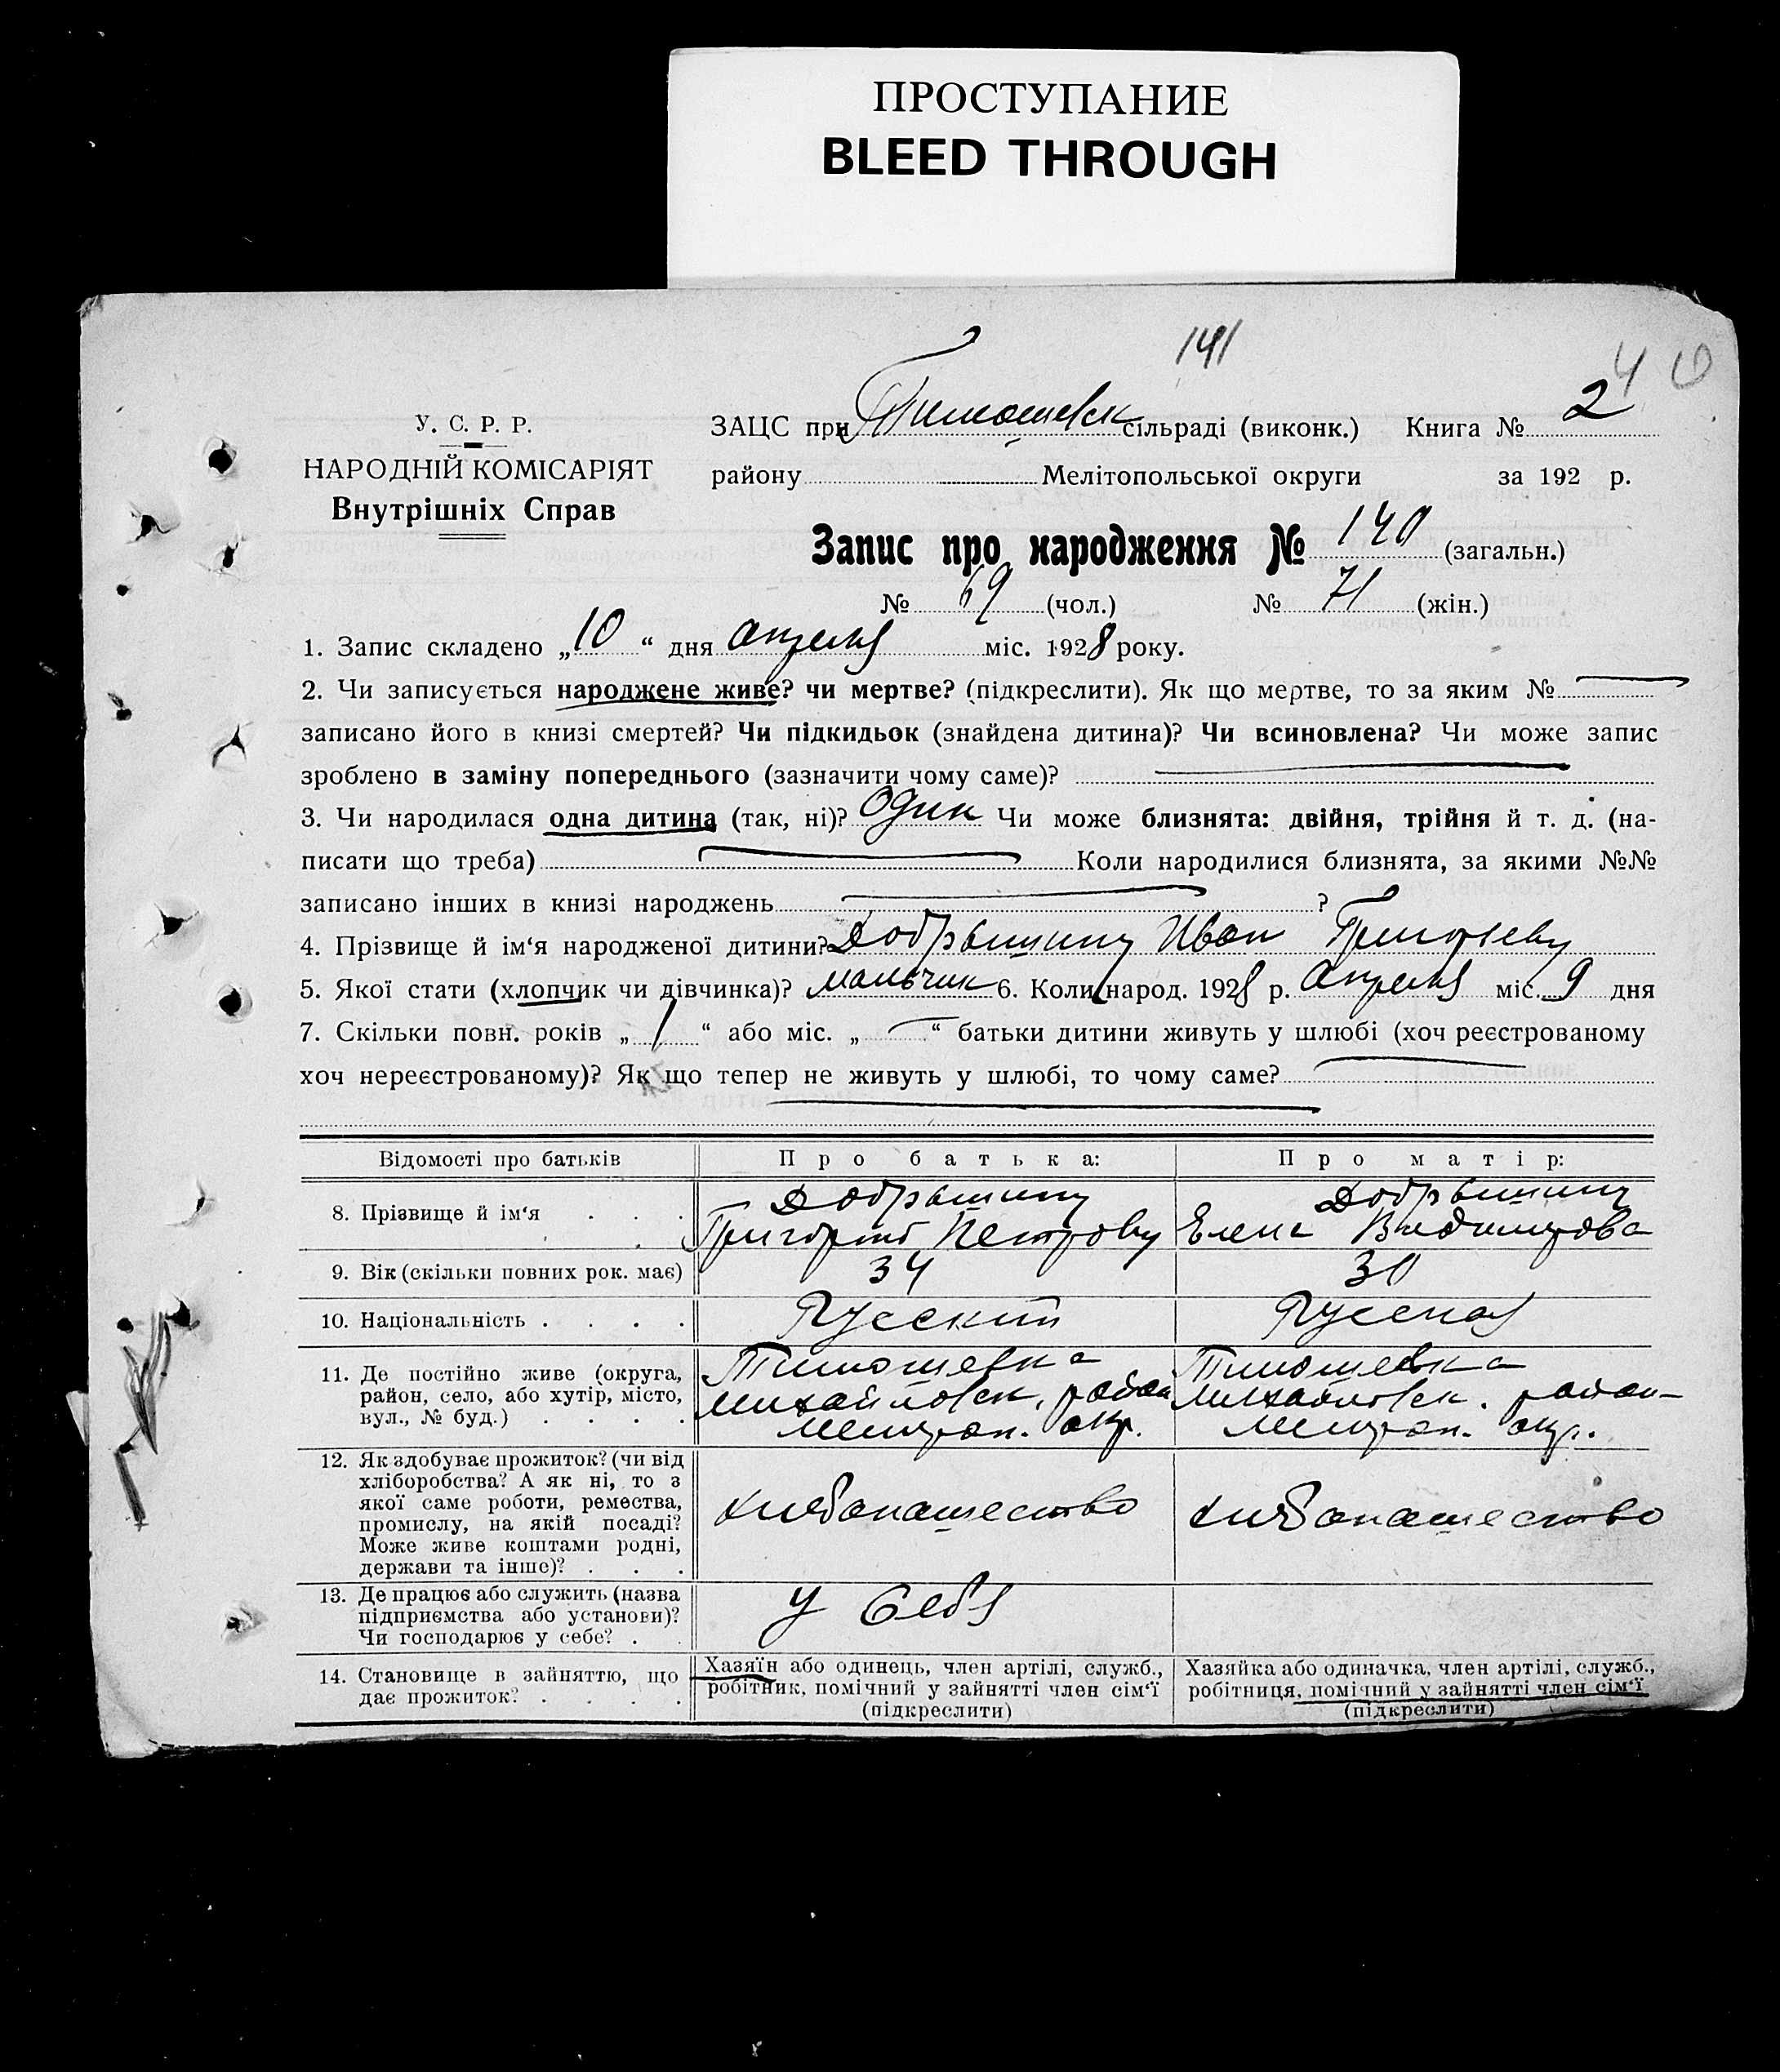 ПРОСТУПАНИЕ
BLEED THROUGH
141
4 0
У. С. Р. Р.
НАРОДНІЙ КОМІСАРІЯТ
Внутрішніх Справ
ЗАЦС при Тимошевск сільраді (виконк.) Книга № 2
району Мелітопольської округи за 192 р.
Запис про народження № 140 (загальн.)
№ 69 (чол.) № 71 (жін.)
1. Запис складено „10“ дня апреля міс. 1928 року.
2. Чи записується народжене живе? чи мертве? (підкреслити). Як що мертве, то за яким №
записано його в книзі смертей? Чи підкидьок (знайдена дитина)? Чи всиновлена? Чи може запис
зроблено в заміну попереднього (зазначити чому саме)?
3. Чи народилася одна дитина (так, ні)? Один Чи може близнята: двійня, трійня й т. д. (на-
писати що треба) Коли народилися близнята, за якими №№
записано інших в книзі народжень ?
4. Прізвище й ім‘я народженої дитини? Иван
5. Якої стати (хлопчик чи дівчинка)? мальчик 6. Коли народ. 1928 р. Апреля міс. 9 дня
7. Скільки повн. років „1“ або міс. „ “ батьки дитини живуть у шлюбі (хоч реєстрованому
хоч нереєстрованому)? Як що тепер не живуть у шлюбі, то чому саме?
Відомості про батьків
Про батька:
Про матір:
8. Прізвище й ім‘я . . .
Григорий Петрову
Елена
9. Вік (скільки повних рок. має)
34
30
10. Національність . . . .
Русский
Русская
11. Де постійно живе (округа,
район, село, або хутір, місто,
вул., № буд.) . . . .
Тимошевка
Михайловск. район
Мелитоп. окр.
Тимошевка
Михайловск. район
Мелитоп. окр.
12. Як здобуває прожиток? (чи від
хліборобства? А як ні, то з
якої саме роботи, ремества,
промислу, на якій посаді?
Може живе коштами родні,
держави та інше)? . . .
хлебопашество
хлебопашество
13. Де працює або служить (назва
підприємства або установи)?
Чи господарює у себе? . .
У себя
14. Становище в зайняттю, що
дає прожиток? . . . .
Хазяїн або одинець, член артілі, служб.,
робітник, помічний у зайнятті член сім‘ї
(підкреслити)
Хазяйка або одиначка, член артілі, служб.,
робітниця, помічний у зайнятті член сім‘ї
(підкреслити)